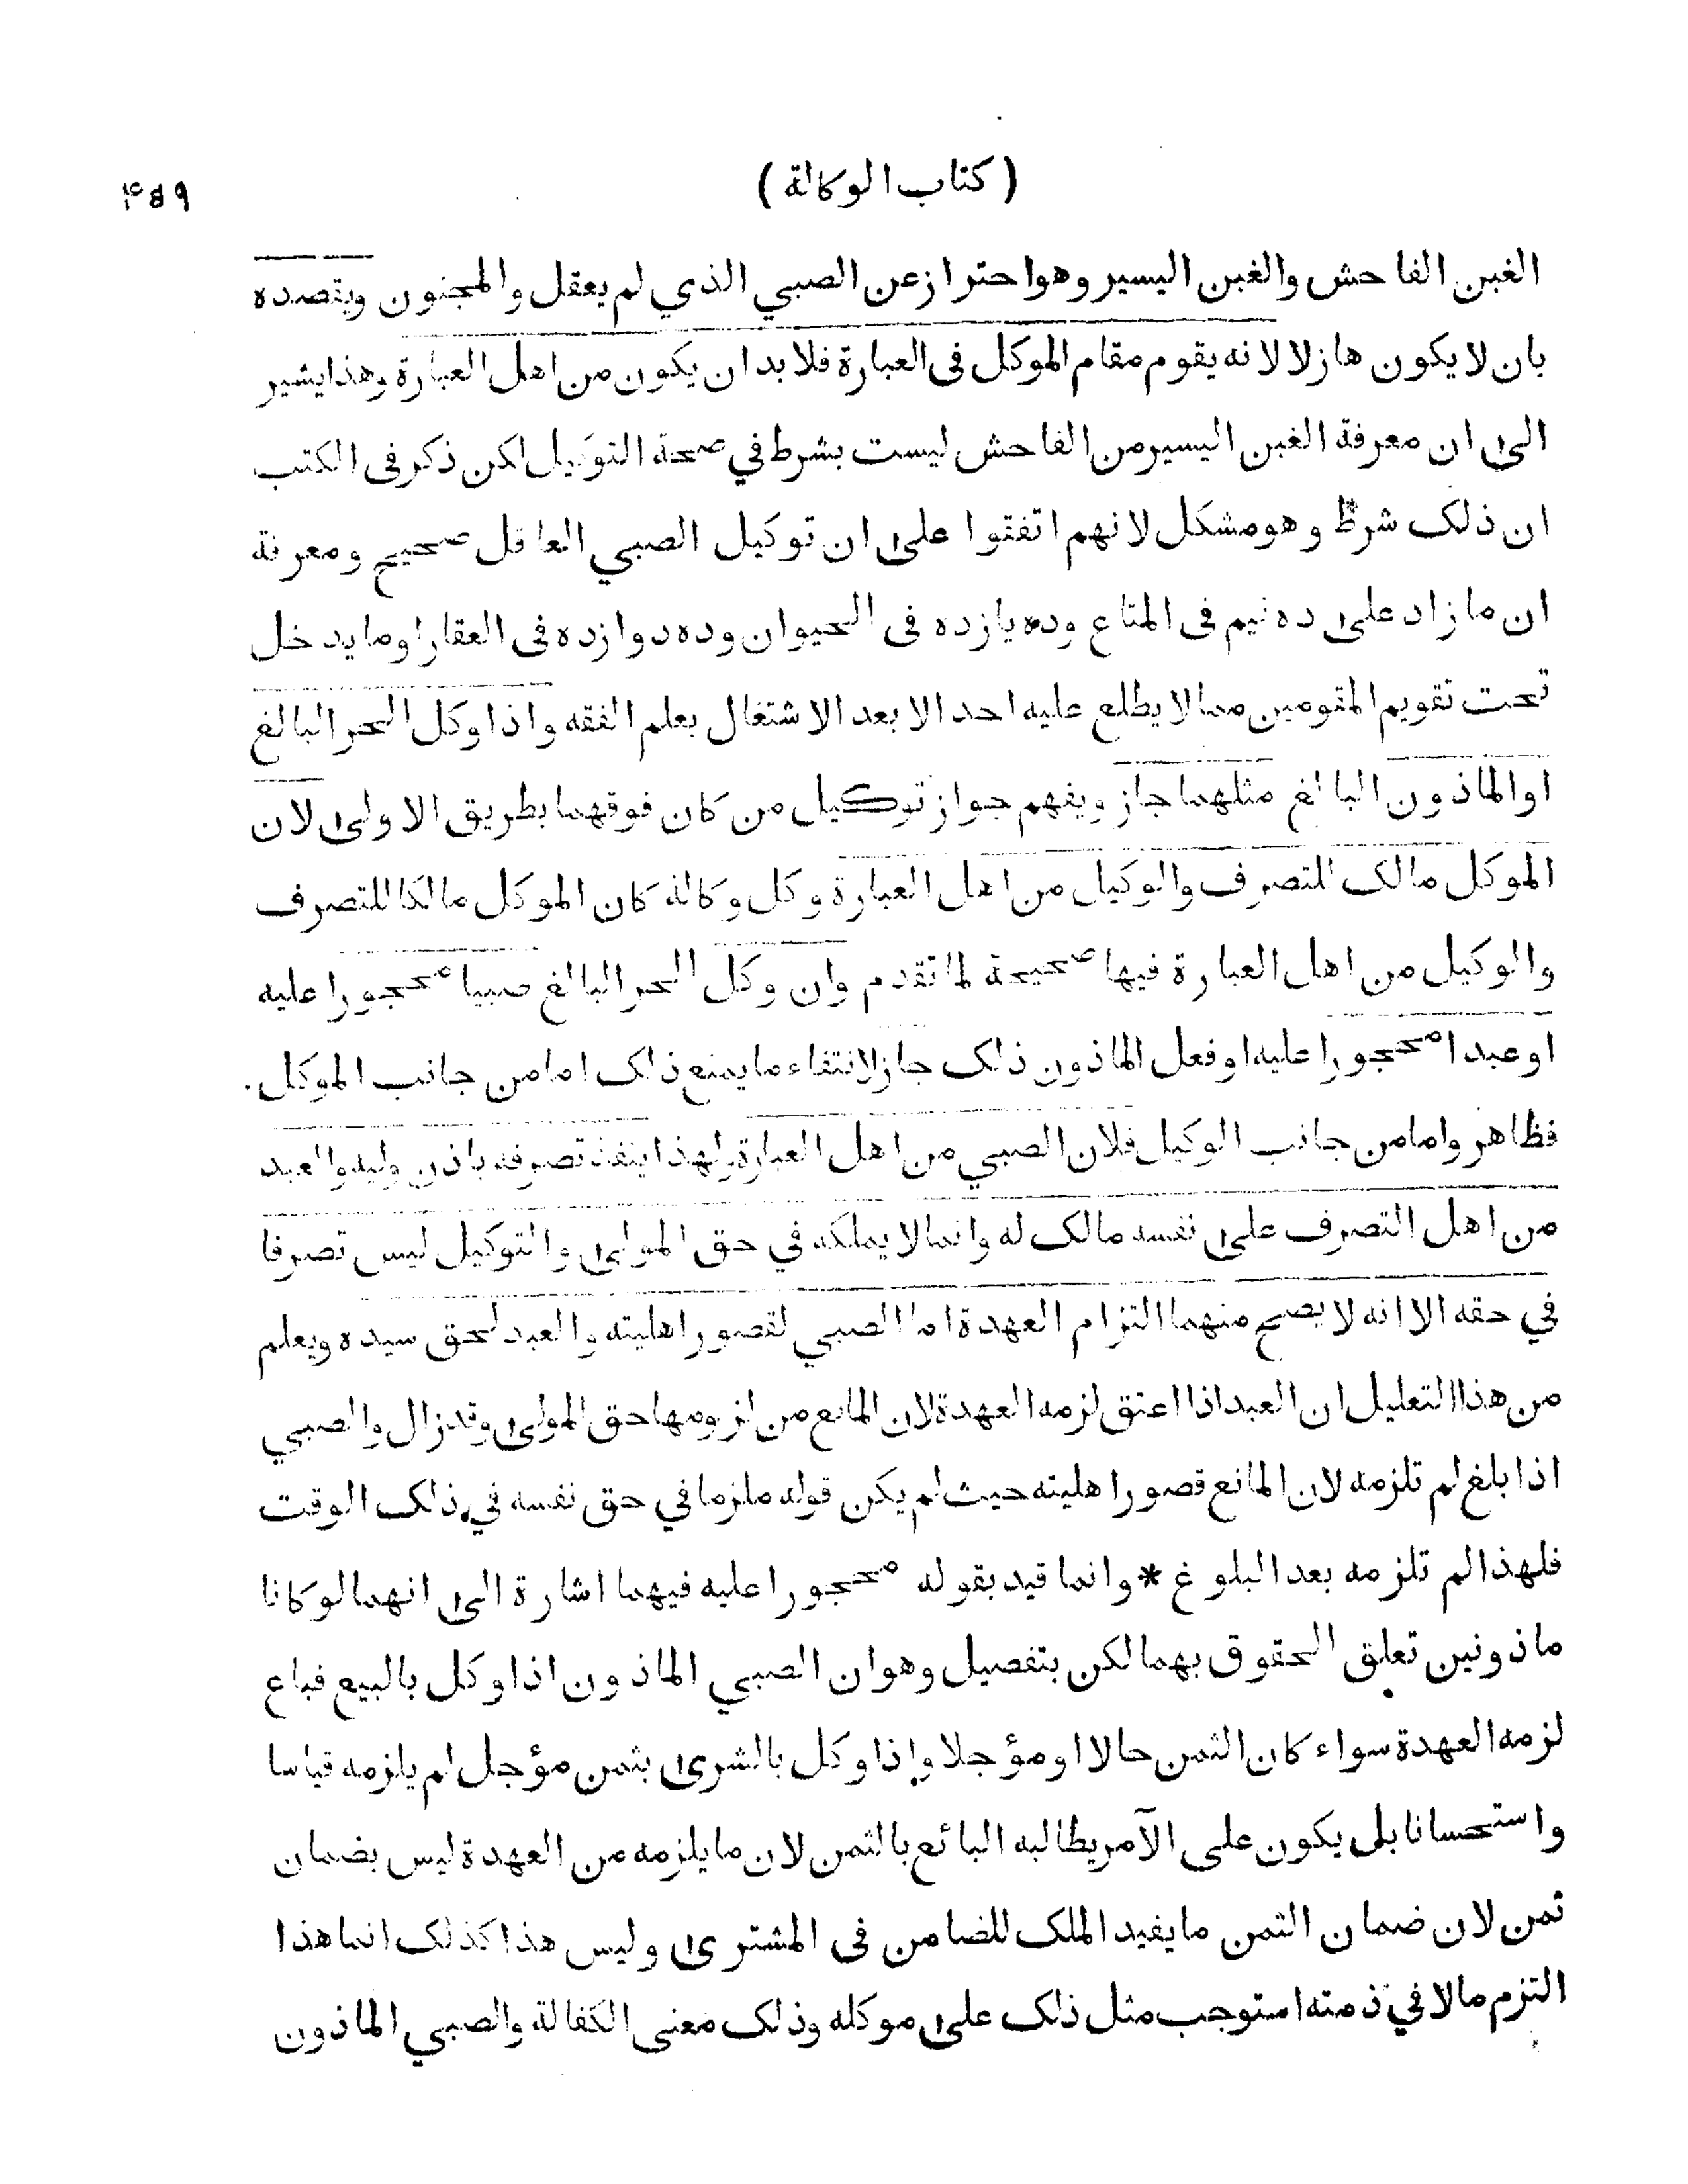 ( كتاب الوكالة )
الغبن الفاحش والغبن اليسير وهو احتراز عن الصبي الذي لم يعقل والمجنون ويقصده
بان لا يكون هازلا لانه يقوم مقام الموكل فى العبارة فلا بد ان يكون من اهل العبارة وهذا يشير
الى ان معرفة الغبن اليسير من الفاحش ليست بشرط في صحة التوكيل لكن ذكر فى الكتب
ان ذلك شرط وهو مشكل لانهم اتفقوا على ان توكيل الصبي العاقل صحيح ومعرفة
ان ما زاد على ده نيم فى المتاع وده يازده فى الحيوان وده دوازده فى العقار او ما يدخل
تحت تقويم المقومين مما لا يطلع عليه احد الا بعد الاشتغال بعلم الفقه واذا وكل الحر البالغ
او الماذون البالغ مثلهما جاز ويفهم جواز توكيل من كان فوقهما بطريق الاولى لان
الموكل مالك للتصرف والوكيل من اهل العبارة وكل وكالة كان الموكل مالكا للتصرف
والوكيل من اهل العبارة فيها صحيحة لما تقدم وان وكل الحر البالغ صبيا محجورا عليه
او عبدا محجورا عليه او فعل الماذون ذلك جاز لانتفاء ما يمنع ذلك اما من جانب الموكل
فظاهر واما من جانب الوكيل فلان الصبي من اهل العبارة ولهذا ينفذ تصرفه باذن وليه والعبد
من اهل التصرف على نفسه مالك له وانما لا يملكه في حق المولى والتوكيل ليس تصرفا
في حقه الا انه لا يصح منهما التزام العهدة اما الصبي لقصور اهليته والعبد لحق سيده ويعلم
من هذا التعليل ان العبد اذا اعتق لزمه العهدة لان المانع من لزومها حق المولى وقد زال والصبي
اذا بلغ لم تلزمه لان المانع قصور اهليته حيث لم يكن قوله ملزما في حق نفسه في ذلك الوقت
فلهذا لم تلزمه بعد البلوغ * وانما قيد بقوله محجورا عليه فيهما اشارة الى انهما لو كانا
ماذونين تعلق الحقوق بهما لكن بتفصيل وهو ان الصبي الماذون اذا وكل بالبيع فباع
لزمه العهدة سواء كان الثمن حالا او مؤجلا وإذا وكل بالشرى بثمن مؤجل لم يلزمه قياسا
واستحسانا بلى يكون على الآمر يطالبه البائع بالثمن لان ما يلزمه من العهدة ليس بضمان
ثمن لان ضمان الثمن ما يفيد الملك للضامن فى المشترى وليس هذا كذلك انما هذا
التزم مالا في ذمته استوجب مثل ذلك على موكله وذلك معنى الكفالة والصبي الماذون